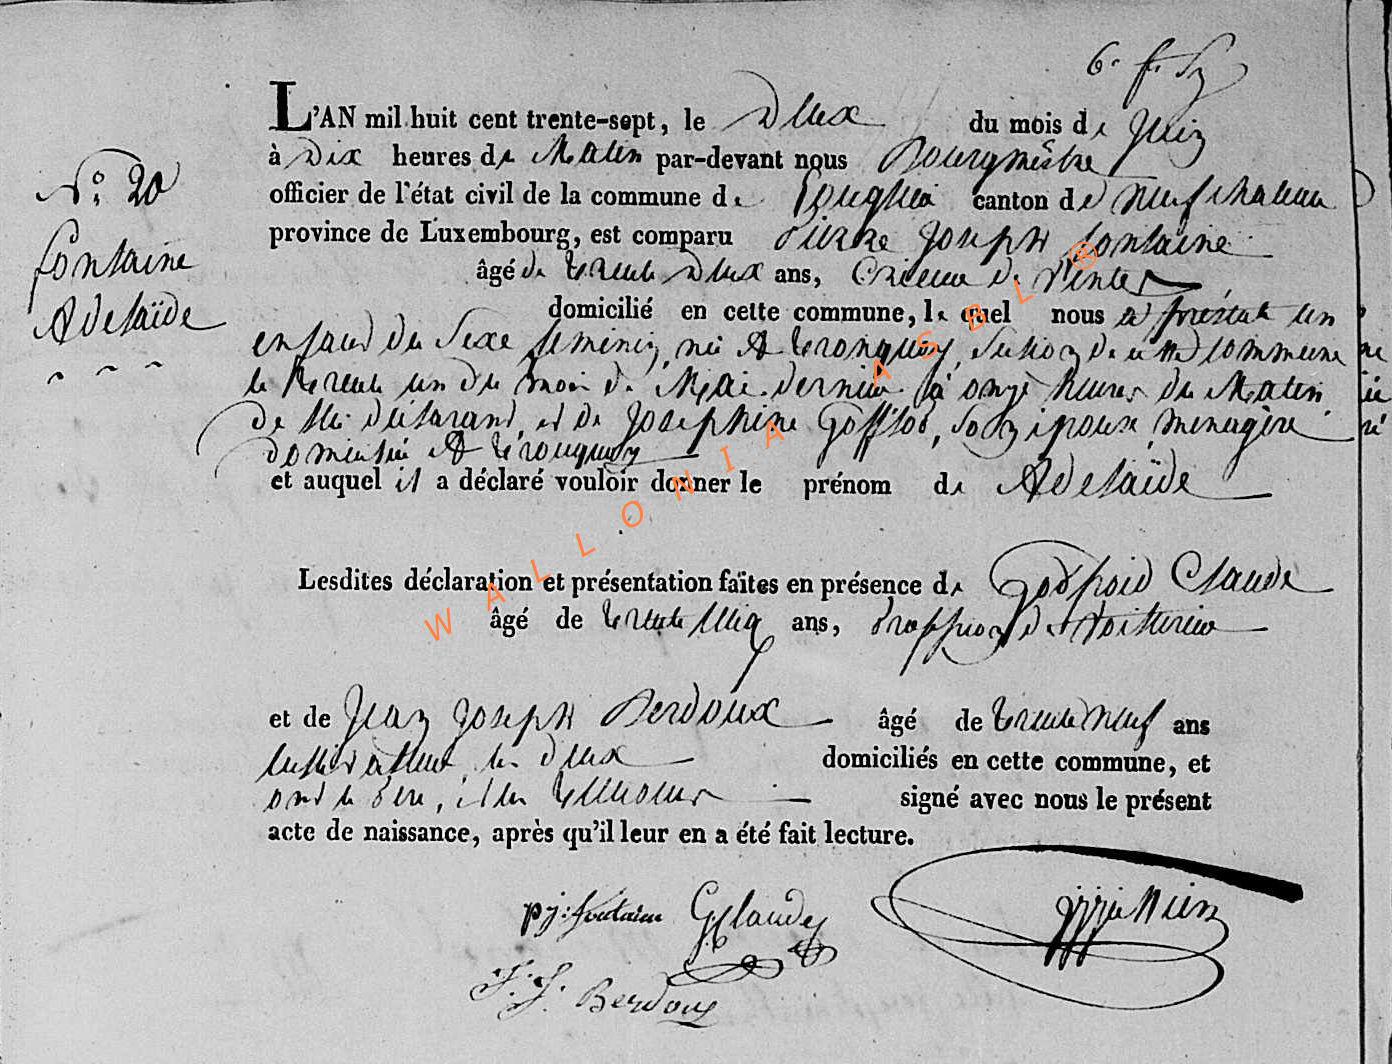 6. f.
L'AN mil huit cent trente-sept, le Deux du mois de Juin
à Dix heures de Matin par-devant nous Bourgmêstre
officier de l'état civil de la commune de Longlier canton de Neufchateau
province de Luxembourg, est comparu Pierre Joseph fontaine
âgé de trente Deux ans, de
domicilié en cette commune, le quel nous a présenté un
enfant du Sexe feminin, née A tronquoy, Section de cette commune
le trente un du mois de Mai dernier à onze heures du Matin
de lui déclarant, et de Josephine Gofflot, son épouse, menagère
domiciliée A tronquoy
et auquel il a déclaré vouloir donner le prénom de Adelaïde
N°. 20
fontaine
Adelaïde
Lesdites déclaration et présentation faites en présence de Godfroid Claude
âgé de trente cinq ans, proffession de Voiturier
et de Jean Joseph Berdoux âgé de trente Neuf ans
cultivateur, les deux domiciliés en cette commune, et
ont le pere, et les temoins signé avec nous le présent
acte de naissance, après qu'il leur en a été fait lecture.
pj: fontaine G Claude
J. J. Berdoux
WALLONIA ASBL ®